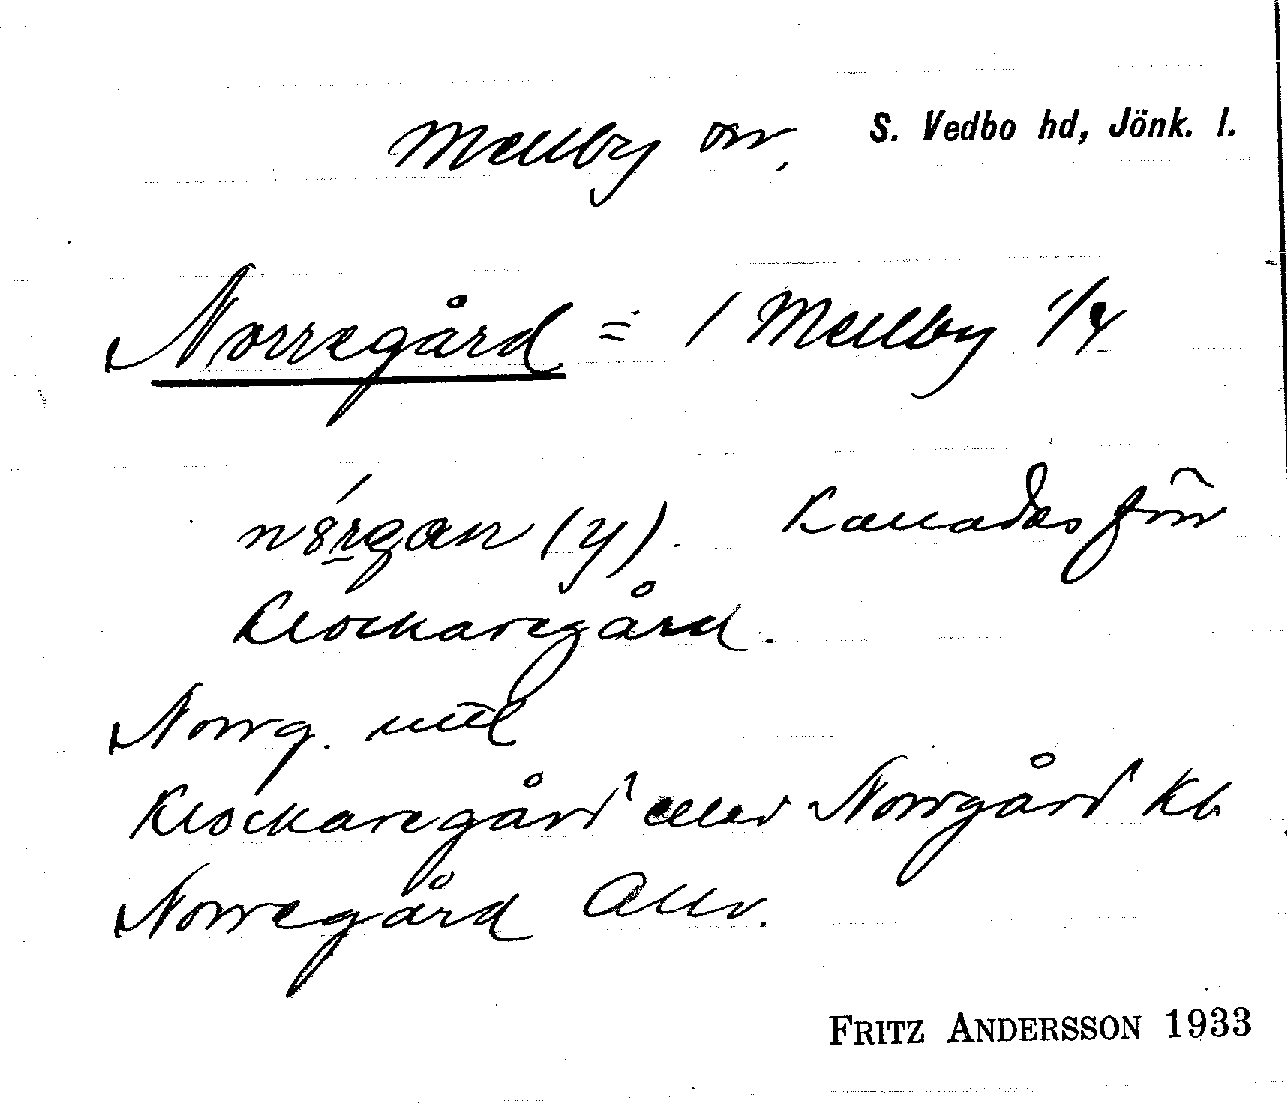 Mellby sn, S. Vedbo hd, Jönk. l.
Norregård = 1 Mellby 1/4
(y). Kallades förr
Klockaregård.
Norrg. mtl
Klockaregård eller Norrgård Kb
Norregård Allm.
FRITZ ANDERSSON 1933